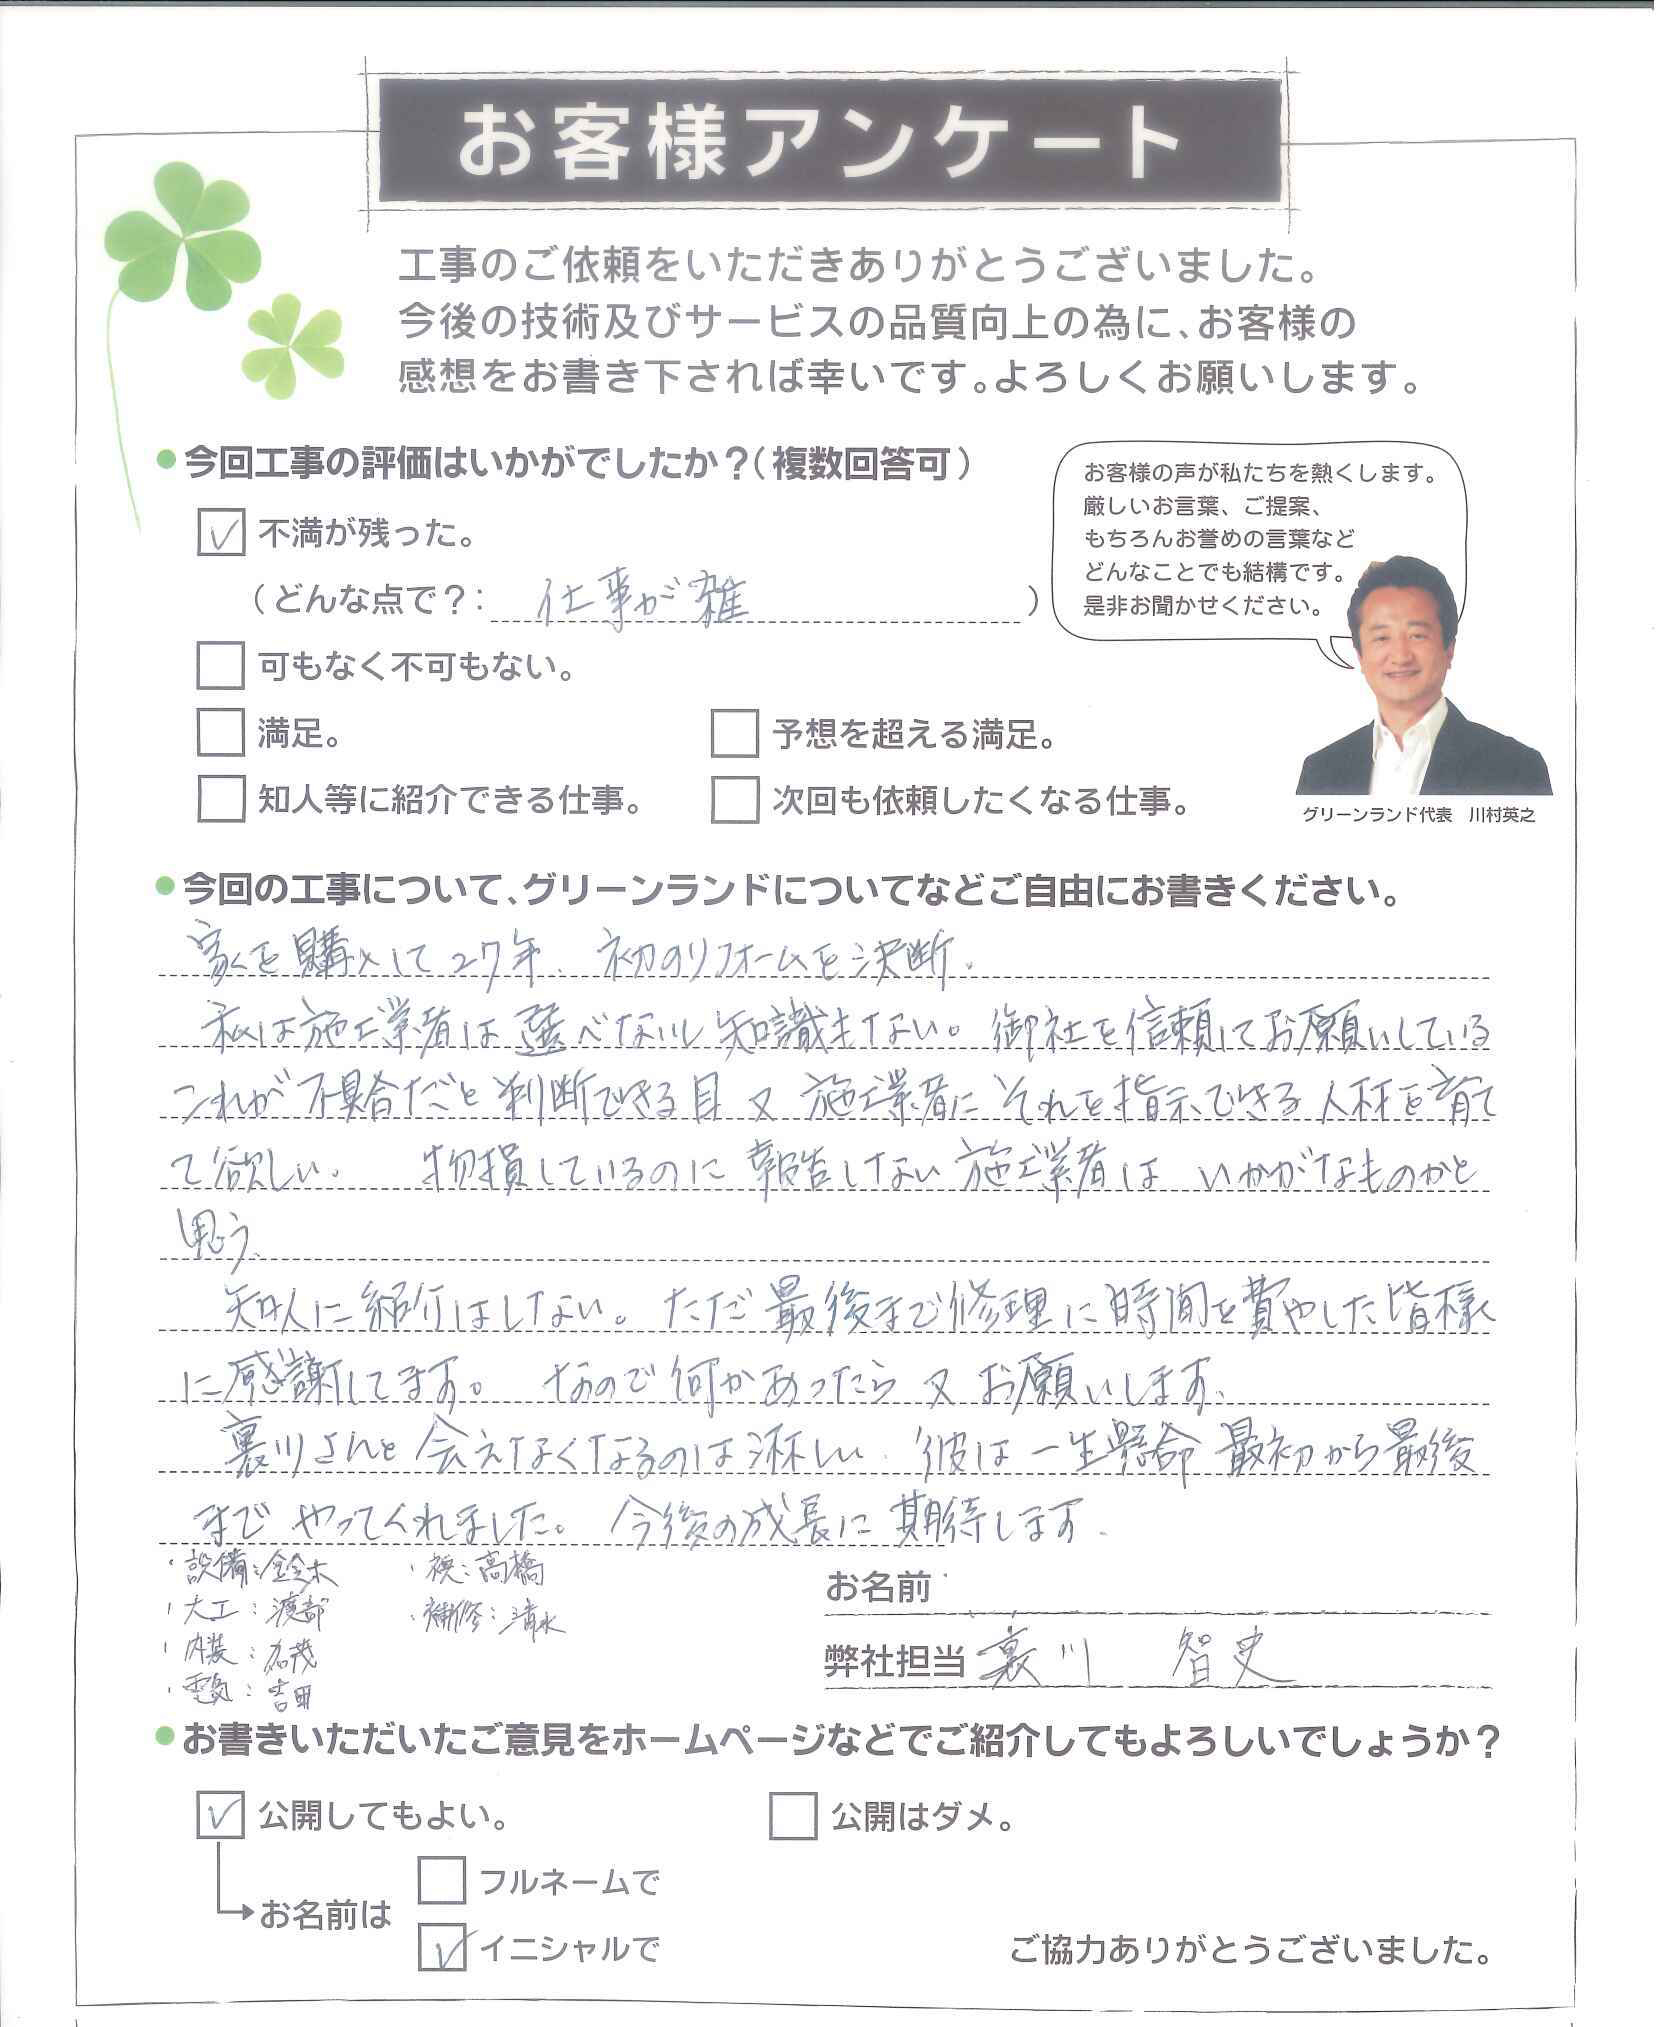 お客様アンケート
工事のご依頼をいただきありがとうございました。
今後の技術及びサービスの品質向上の為に、お客様の
感想をお書き下されば幸いです。よろしくお願いします。
今回工事の評価はいかがでしたか？（複数回答可）
不満が残った。
（どんな点で？： 仕事が雑 ）
可もなく不可もない。
満足。 予想を超える満足。
知人等に紹介できる仕事。 次回も依頼したくなる仕事。
お客様の声が私たちを熱くします。
厳しいお言葉、ご提案、
もちろんお誉めの言葉など
どんなことでも結構です。
是非お聞かせください。
グリーンランド代表 川村英之
今回の工事について、グリーンランドについてなどご自由にお書きください。
家を購入して27年、初のリフォームを決断。
私は施工業者は選べないし知識もない。御社を信頼してお願いしている
これが不具合だと判断できる目 又 施工業者に それを指示できる人材を育て
て欲しい。 物損しているのに 報告しない 施工業者は いかがなものかと
思う、
知人に紹介はしない。ただ最後まで修理に時間を費やした皆様
に感謝してます。 なので何かあったら又お願いします、
裏川さんと会えなくなるのは淋しい、彼は一生懸命 最初から最後
まで やってくれました。 今後の成長に 期待します、
・設備：鈴木 ・襖：高橋
・大工：渡部 ・補修：清水
・内装：加茂
・電気：吉田
お名前
弊社担当 裏川 智史
お書きいただいたご意見をホームページなどでご紹介してもよろしいでしょうか？
公開してもよい。 公開はダメ。
お名前は
フルネームで
イニシャルで
ご協力ありがとうございました。